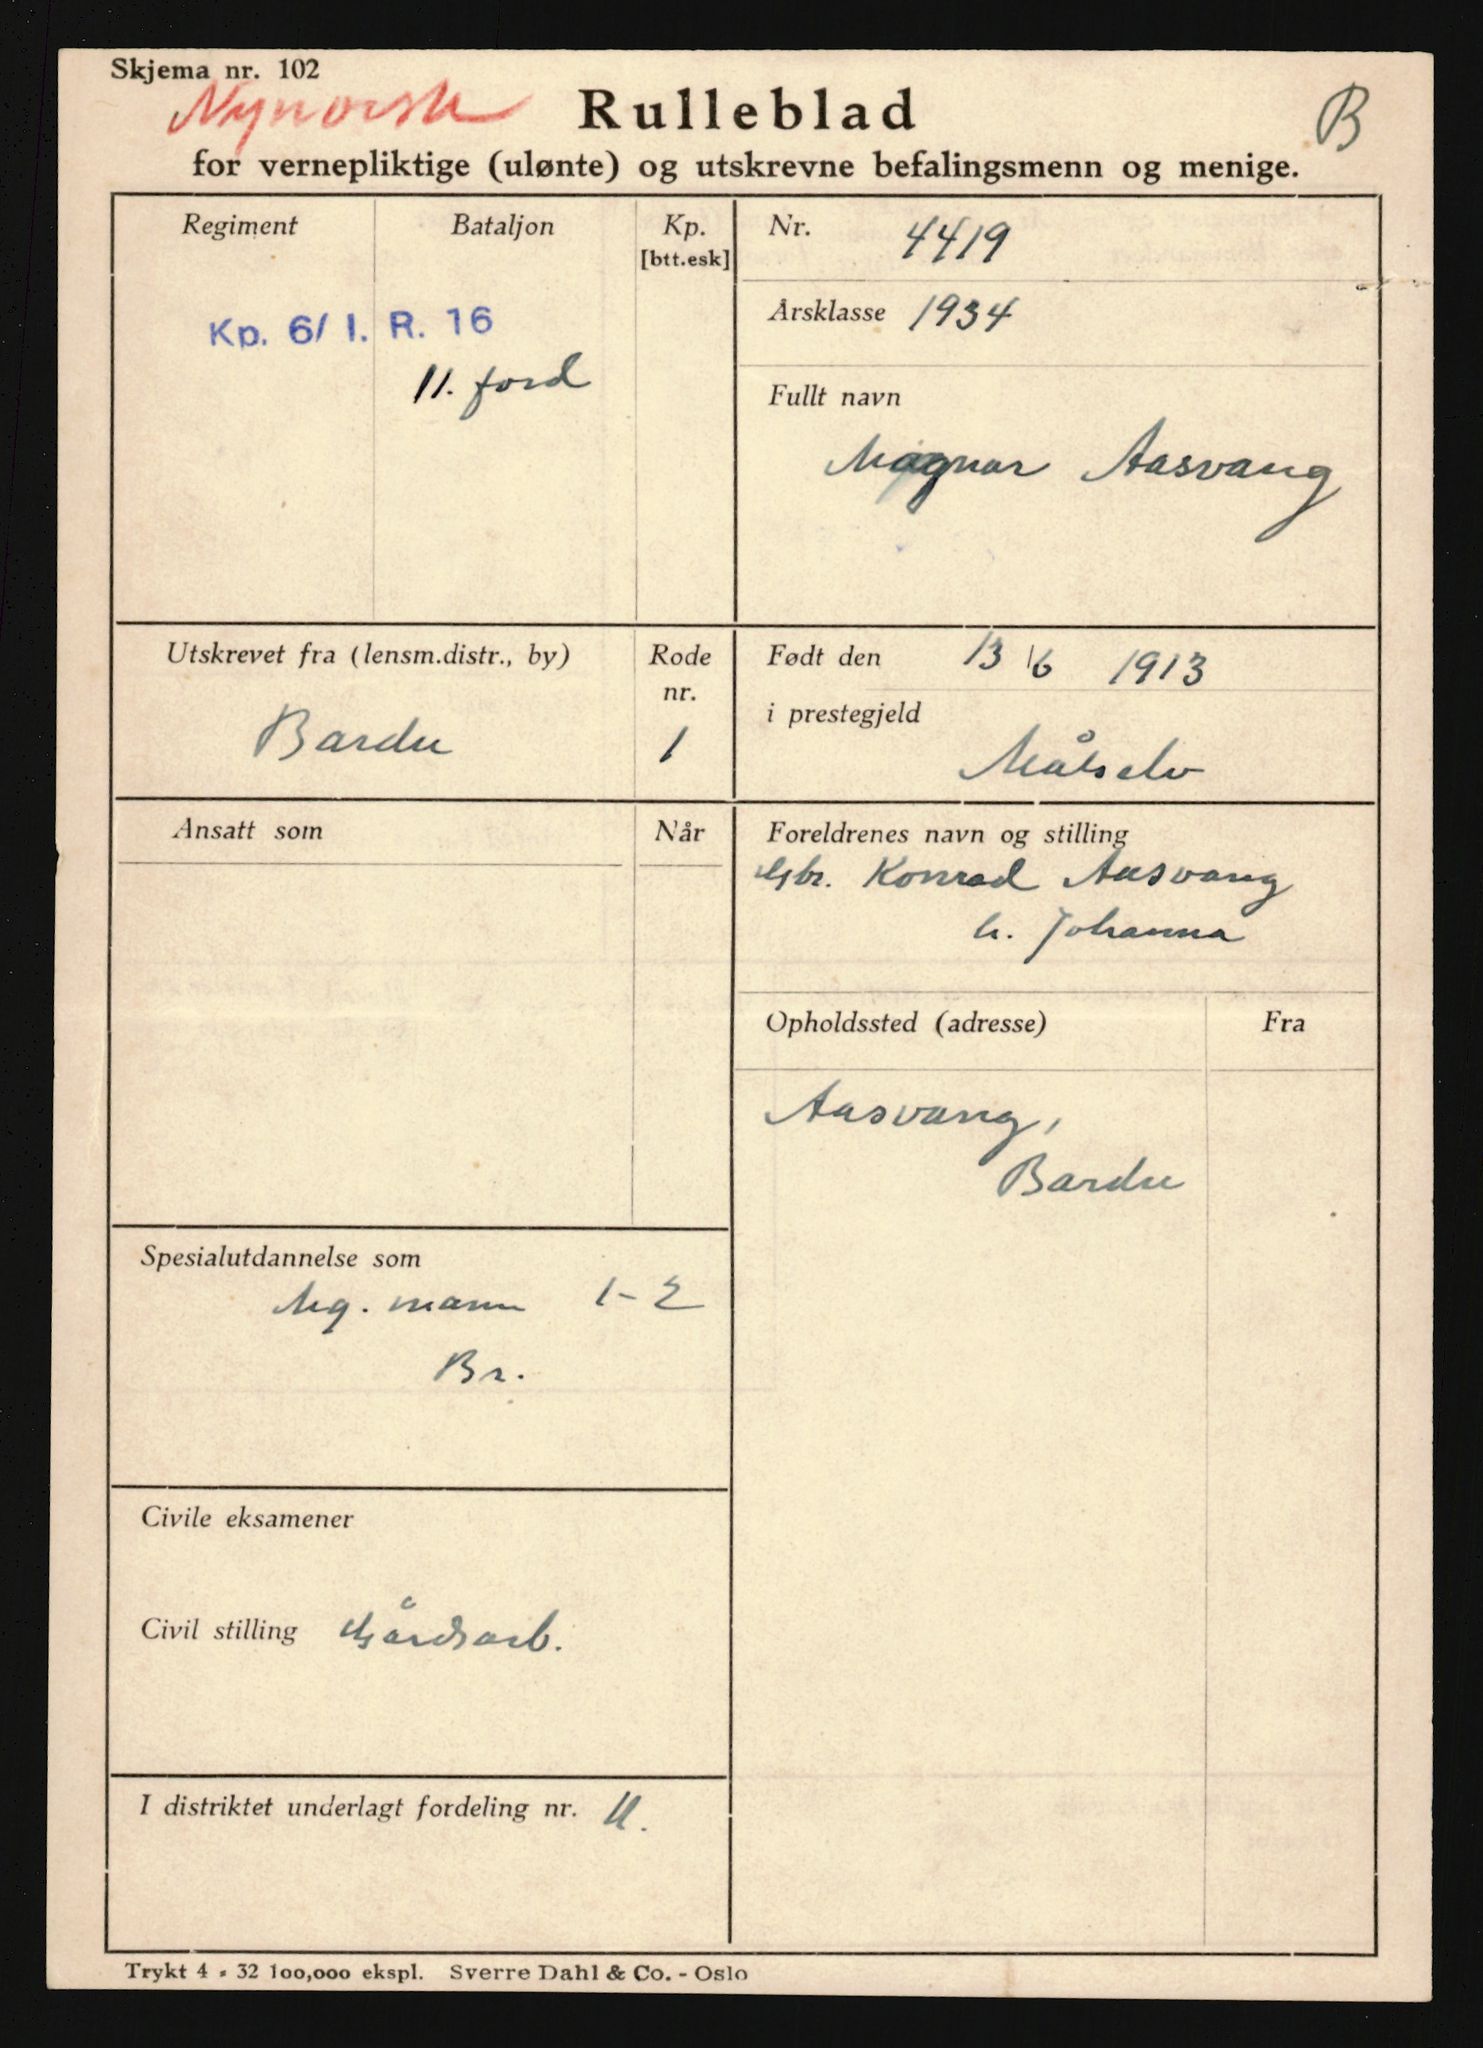 Skjema nr. 102
Nynorsk
Rulleblad
B
for vernepliktige (ulønte) og utskrevne befalingsmenn og menige.
Regiment
Bataljon
Kp.
[btt.esk]
Kp. 6/ I. R. 16
11. ford
Nr. 4419
Årsklasse 1934
Fullt navn
Magnar Aasvang
Utskrevet fra (lensm.distr., by)
Bardu
Rode
nr.
1
Født den 13/6 1913
i prestegjeld
Målselv
Ansatt som
Når
Foreldrenes navn og stilling
Gbr. Konrad Aasvang
h. Johanna
Opholdssted (adresse)
Fra
Aasvang,
Bardu
Spesialutdannelse som
Mg. mann 1-2
Br.
Civile eksamener
Civil stilling Gårdsarb.
I distriktet underlagt fordeling nr. 11.
Trykt 4 - 32 100,000 ekspl. Sverre Dahl & Co. - Oslo